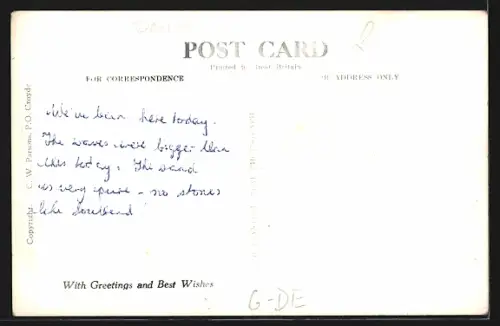 POST CARD
Printed in Great Britain.
FOR CORRESPONDENCE
ADDRESS ONLY
We've been here today.
The waves were bigger than
this today. The sand
is very pure - no stones
like Southend
Copyright. C. W. Parsons, P.O.
With Greetings and Best Wishes
G-DE